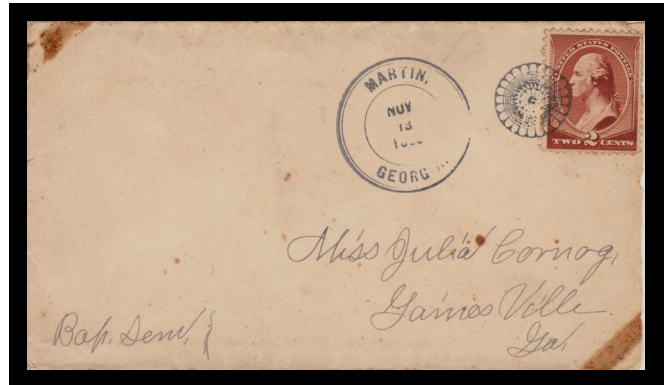 MARTIN,
NOV
13
GEORG
UNITED STATES POSTAGE
TWO 2 CENTS
Miss Julia Cornog,
Gaines Ville
Ga,
Bap. Sem,